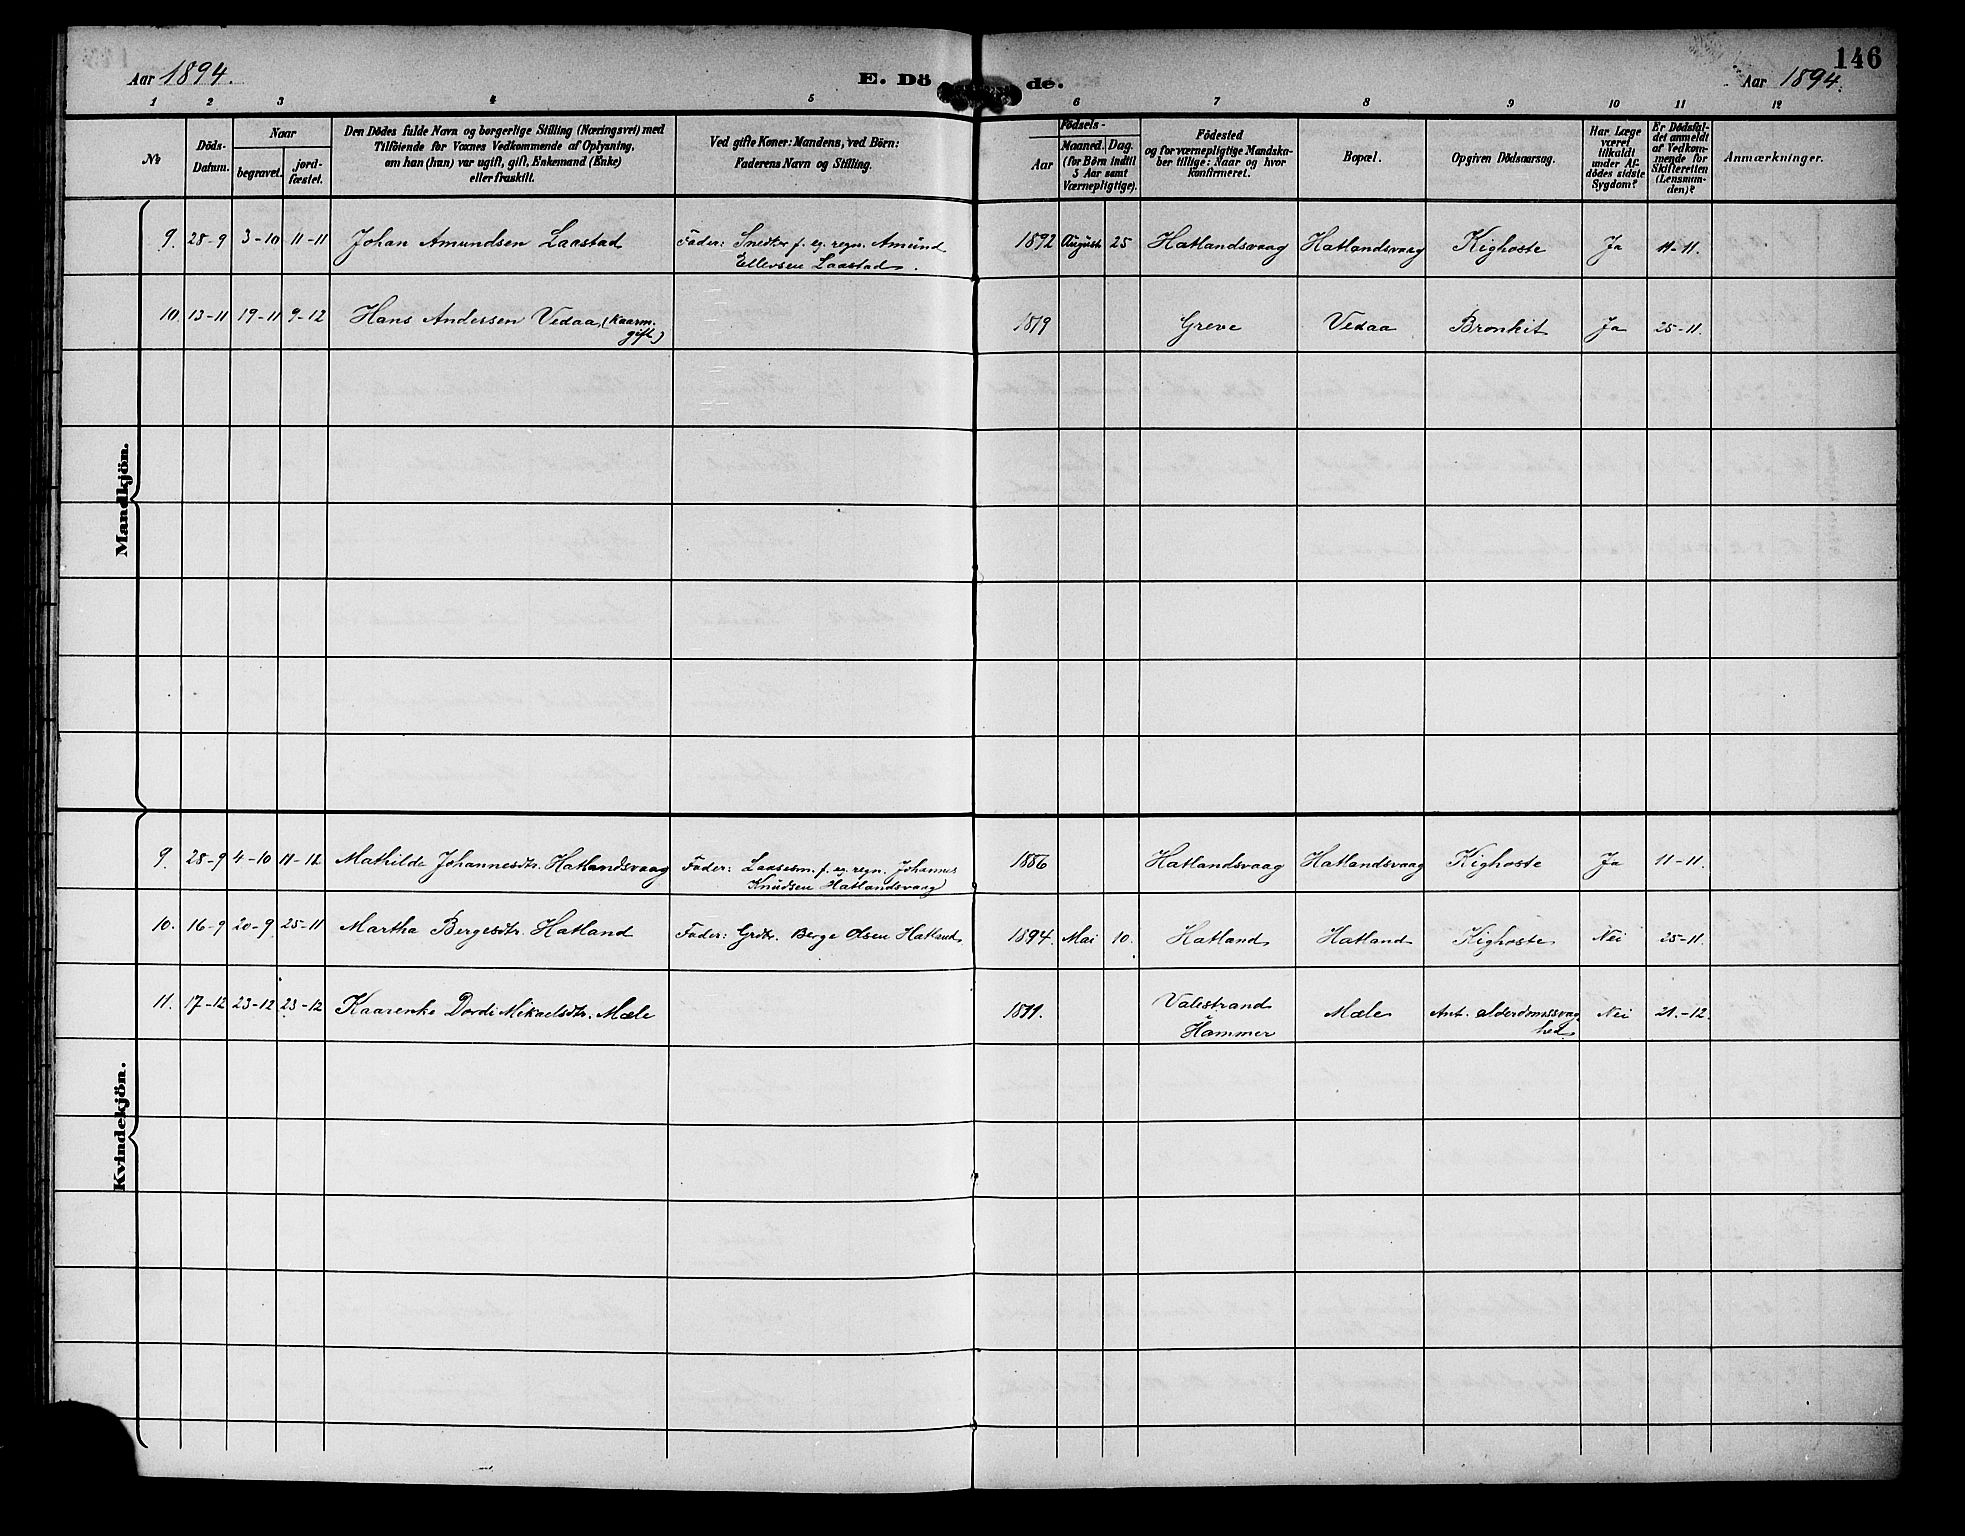 146
Aar 1894.
E. Dö de.
Aar 1894.
1 2 3 4 5 6 7 8 9 10 11 12
No
Döds-
Datum.
Naar
begravet.
jord-
fæstet.
Den Dödes fulde Navn og borgerlige Stilling (Næringsvei) med
Tilföiende for Voxnes Vedkommende af Oplysning,
om han (hun) var ugift, gift, Enkemand (Enke)
eller fraskilt.
Ved gifte Koner: Mandens, ved Börn:
Faderens Navn og Stilling.
Födsels-
Aar
Maaned. Dag.
(for Börn indtil
5 Aar samt
Værnepligtige).
Födested
og for værnepligtige Mandska-
ber tillige: Naar og hvor
konfirmeret.
Bopæl.
Opgiven Dödsaarsag.
Har Læge
været
tilkaldt
under Af-
dödes sidste
Sygdom?
Er Dödsfal-
det anmeldt
af Vedkom-
mende for
Skifteretten
(Lensman-
den)?
Anmærkninger.
Mandkjön.
9. 28-9 3-10 11-11 Johan Amundsen Laastad Fader: Snedker f. eg. regn. Amund 1892 August 25 Hatlandsvaag Hatlandsvaag Kighoste Ja 11-11.
Ellevsen Laastad.
10. 13-11 19-11 9-12 Hans Andersen Vedaa, (Kaarm. 1819 Greve Vedaa Bronkit Ja 25-11.
gift)
Kvindekjön.
9. 28-9 4-10 11-12 Mathilde Johannesdtr. Hatlandsvaag Fader: Laasesm. f. eg. regn. Johannes 1886 Hatlandsvaag Hatlandsvaag Kighoste Ja 11-11.
Knudsen Hatlandsvaag
10. 16-9 20-9 25-11 Martha Bergesdtr. Hatland Fader: Grdbr. Berge Olsen Hatland 1894. Mai 10. Hatland Hatland Kighoste Nei 25-11.
11. 17-12 23-12 23-12 Kaarenke Dordi Mikaelsdtr. Mæle Valestrand Mæle Ant. alderdomssvag- Nei 21.-12.
i Hammer hed